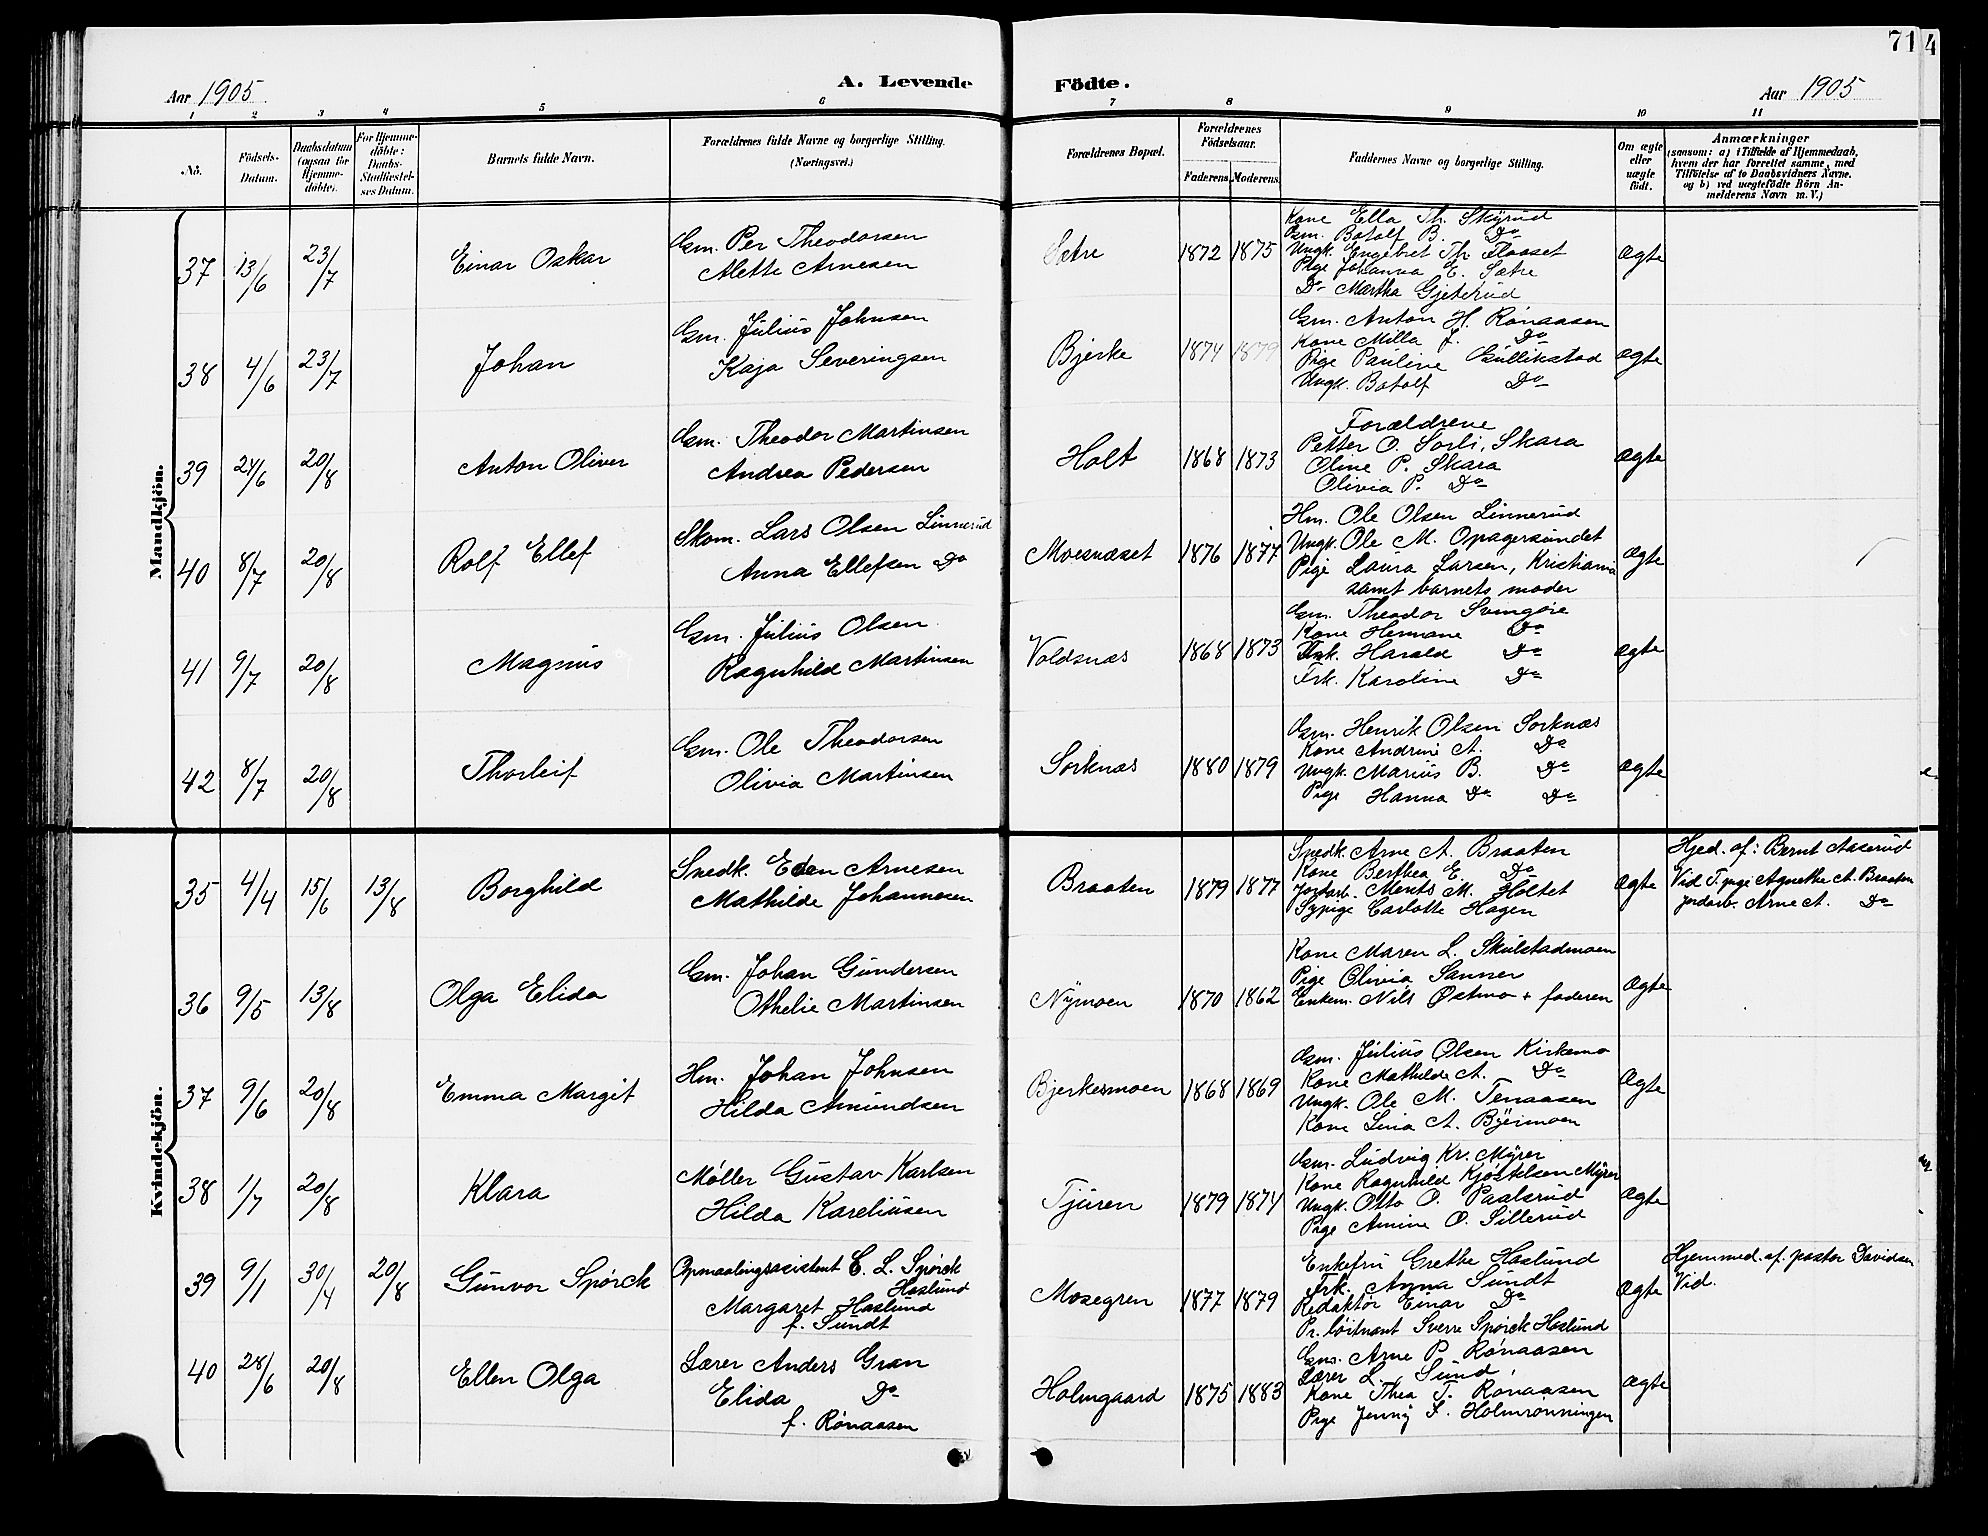 71
4
Aar 1905.
A. Levende
Födte.
Aar 1905
1 2 3 4 5 6 7 8 9 10 11
No.
Födsels-Datum.
Daabsdatum (ogsaa for Hjemmedöbte).
For Hjemmedöbte: Daabs-Stadfæstelses Datum.
Barnets fulde Navn.
Forældrenes fulde Navne og borgerlige Stilling. (Næringsvei.)
Forældrenes Bopæl.
Forældrenes Födselsaar.
Faderens. Moderens.
Faddernes Navne og borgerlige Stilling.
Om ægte eller uægte födt.
Anmærkninger
(saasom: a) i Tilfælde af Hjemmedaab, hvem der har forrettet samme, med Tilföielse af to Daabsvidners Navne, og b) ved uægtefödte Börn Anmelderens Navn m. V.)
Mandkjön.
37 13/6 23/7 Einar Oskar
Gm. Per Theodorsen
Alette Arnesen
Sætre 1872 1875
Kone Ella Th. Skyrud
Gm. Botolf B. Do
Ungk. Engebret Th. Flaaset
Pige Johanna E. Sætre
Do Martha Gjeterud
Ægte
38 4/6 23/7 Johan
Gm. Julius Johnsen
Kaja Severingsen
Bjerke 1874 1879
Gm. Anton H. Rønaasen
Kone Milla J. Do
Pige Pauline Gullikstad
Ungk. Botolf Do
Ægte
39 24/6 20/8 Anton Oliver
Gm. Theodor Martinsen
Andrea Pedersen
Holt 1868 1873
Forældrene
Petter O. Sorli, Skara
Oline P. Skara
Olivia P. Do
Ægte
40 8/7 20/8 Rolf Ellef
Skom. Lars Olsen Linnerud
Anna Ellefsen Do
Moesnæset 1876 1877
Hm. Ole Olsen Linnerud
Ungk. Ole M. Opagersundet
Pige Laura Larsen, Kristiania
samt barnets moder
Ægte
41 9/7 20/8 Magnus
Gm. Julius Olsen
Ragnhild Martinsen
Voldsnæs 1868 1873
Gm. Theodor Svingøie
Kone Hermane Do
Harald Do
Frk. Karoline Do
Ægte
42 8/7 20/8 Thorleif
Gm. Ole Theodorsen
Olivia Martinsen
Sorknæs 1880 1879
Gm. Henrik Olsen Sorknæs
Kone Andrine A. Do
Ungk. Marius B. Do
Pige Hanna Do Do
Ægte
Kvindekjön.
35 4/4 15/6 13/8 Borghild
Snedk. Eden Arnesen
Mathilde Johannesen
Braaten 1879 1877
Snedk. Arne A. Braaten
Kone Berthea E. Do
Jordarb. Ments M. Holtet
Sypige Carlotte Hagen
Ægte
Hjed. af: Bernt Aaserud
Vid T. pige Agnethe A. Braaten
jordarb. Arne A. Do
36 9/5 13/8 Olga Elida
Gm. Johan Gundersen
Othelie Martinsen
Nymoen 1870 1862
Kone Maren L. Skulstadmoen
Pige Olivia Sanner
Enkem. Nils Østmo + faderen
Ægte
37 9/6 20/8 Emma Margit
Hm. Johan Johnsen
Hilda Amundsen
Bjerkesmoen 1868 1869
Gm. Julius Olsen Kirkemo
Kone Mathilde A. Do
Ungk. Ole M. Tenaasen
Kone Lina A. Byermoen
Ægte
38 1/7 20/8 Klara
Møller Gustav Karlsen
Hilda Kareliusen
Tjuren 1879 1874
Gm. Ludvig Kr. Myrer
Kone Ragnhild Kjøstelsen Myrer
Ungk. Otto O. Paalsrud
Pige Amine O. Sillerud
Ægte
39 9/1 30/4 20/8 Gunvor Spørck
Opmaalingsasistent C. L. Spørck
Haslund
Margaret Haslund
f. Sundt
Mosegren 1877 1879
Enkefru Grethe Haslund
Frk. Anna Sundt
Redaktør Einar Do
Pr. løitnant Sverre Spørck Haslund
Ægte
Hjemmed. af. pastor Davidsen
Vid.
40 28/6 20/8 Ellen Olga
Lærer Anders Gran
Elida Do
f. Rønaasen
Holmgaard 1875 1883
Gm. Arne P. Rønaasen
Lærer L. Sund
Kone Thea T. Rønaasen
Pige Jenny I. Holmrønningen
Ægte